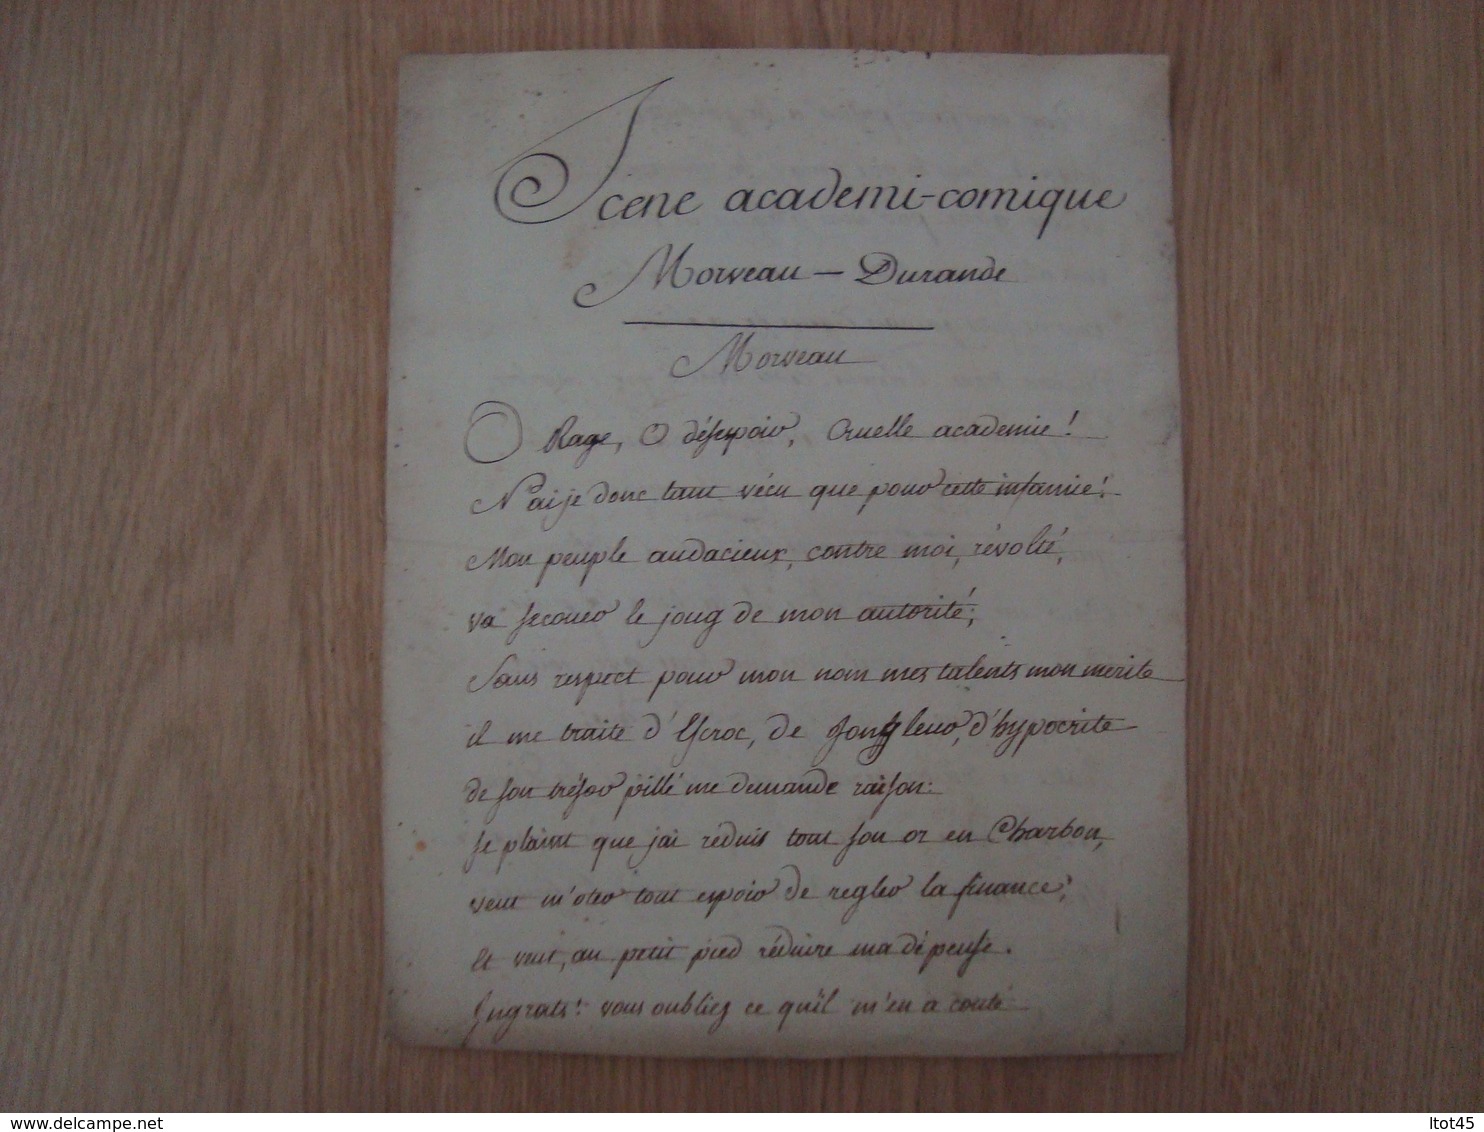 Scene academi-comique
Morveau — Durande
Morveau
O Rage, O désespoir, Cruelle academie!
N'ai je donc tant vécu que pour cette infamie!
Mon peuple audacieux, contre moi, révolté,
va secouer le joug de mon autorité;
Sans respect pour mon nom mes talents mon merite
il me traite d'Escroc, de Jongleur, d'hypocrite
de son trésor pillé me demande raison:
se plaint que j'ai réduis tout son or en Charbon,
veut m'oter tout espoir de regler la finance;
et veut, au petit pied réduire ma dépense.
Ingrats! vous oubliez ce qu'il m'en a couté
delcampe.net
ltot45